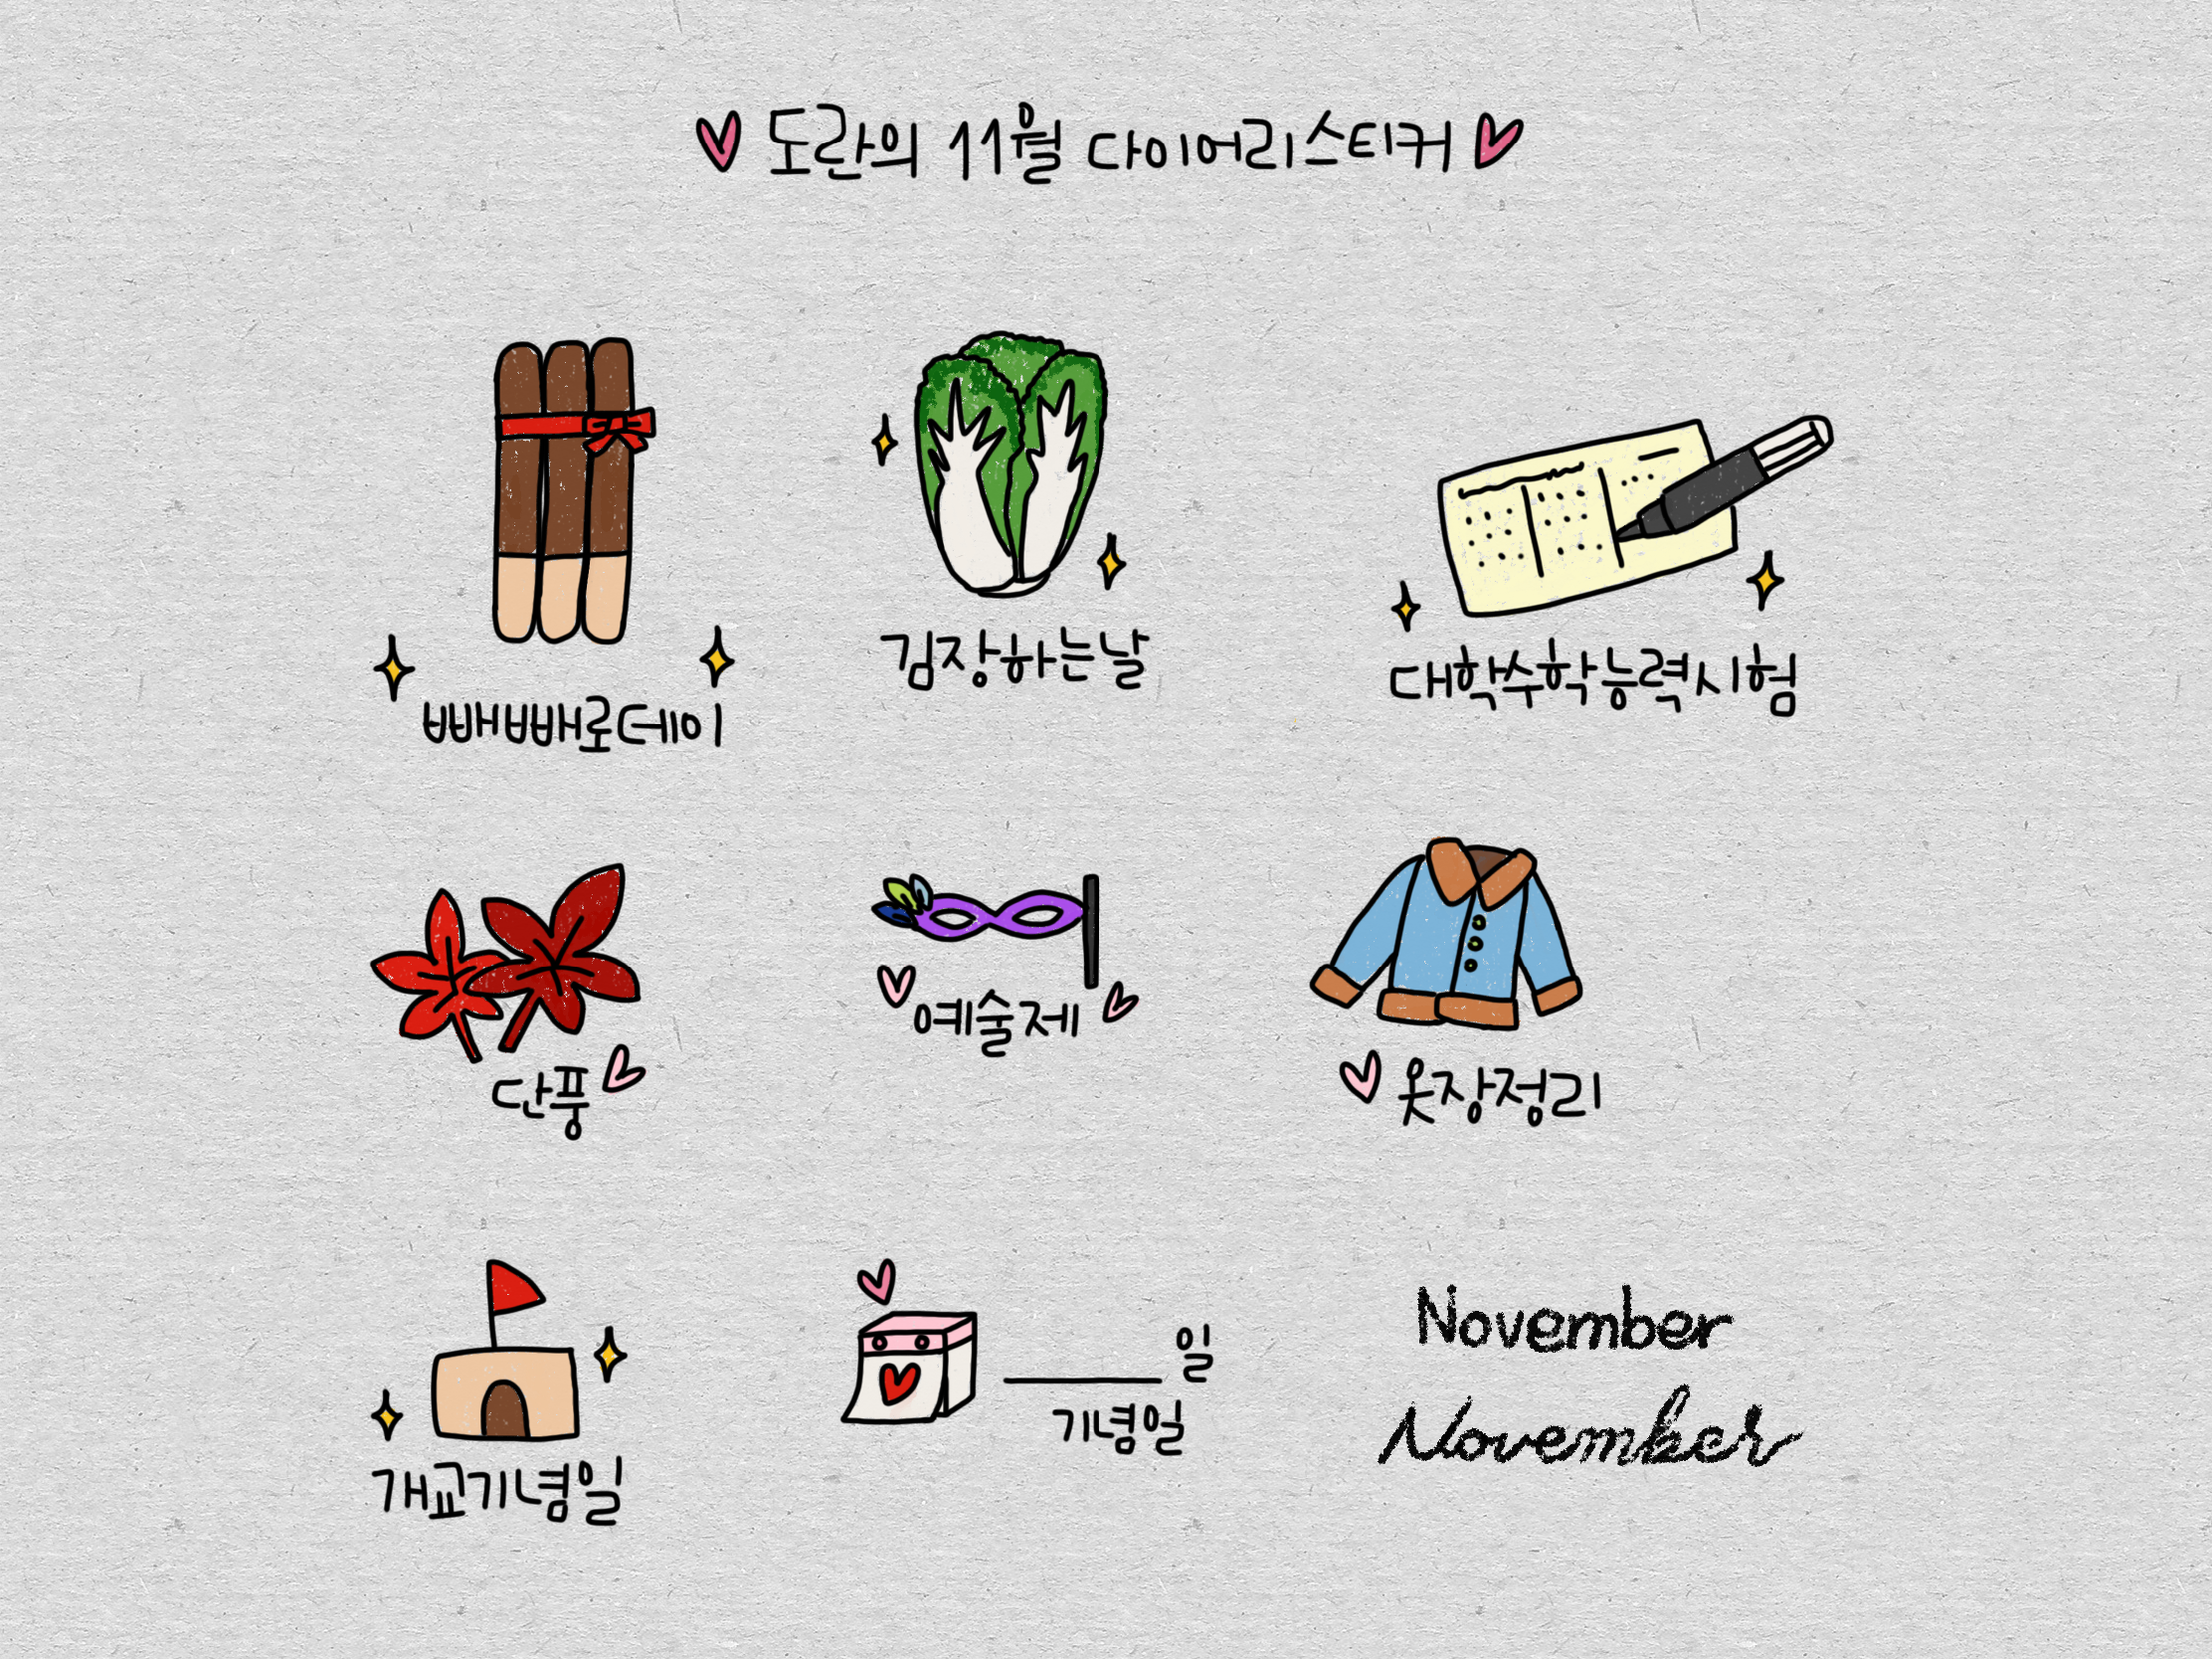 도란의 11월 다이어리스티커
빼빼로데이
김장하는날
대학수학능력시험
단풍
예술제
옷장정리
개교기념일
일
기념일
November
November